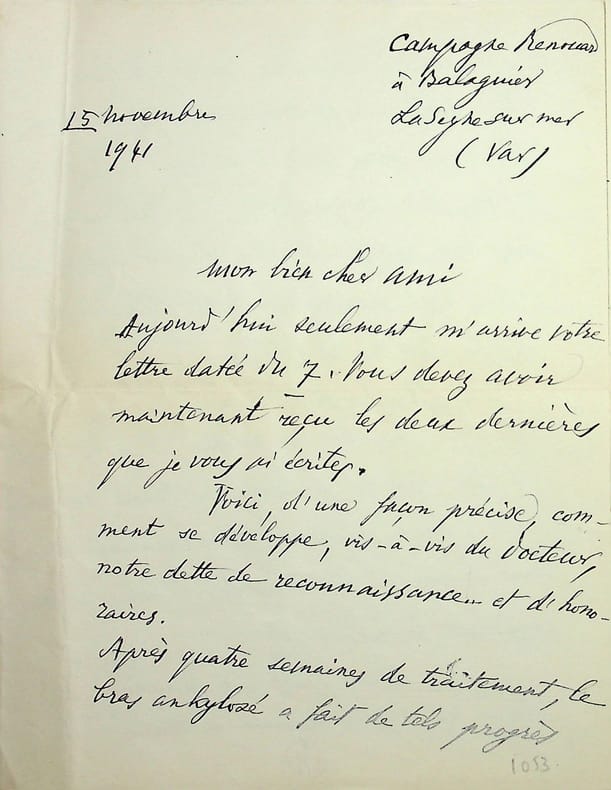 Campagne Renouard
à Balaguier
La Seyne sur mer
(Var)
15 novembre
1941
mon bien cher ami
Aujourd'hui seulement m'arrive votre
lettre datée du 7. Vous devez avoir
maintenant reçu les deux dernières
que je vous ai écrites.
Voici, d'une façon précise, com-
ment se développe, vis-à-vis du Docteur,
notre dette de reconnaissance... et d'hono-
raires.
Après quatre semaines de traitement, le
bras ankylosé a fait de tels progrès
1053